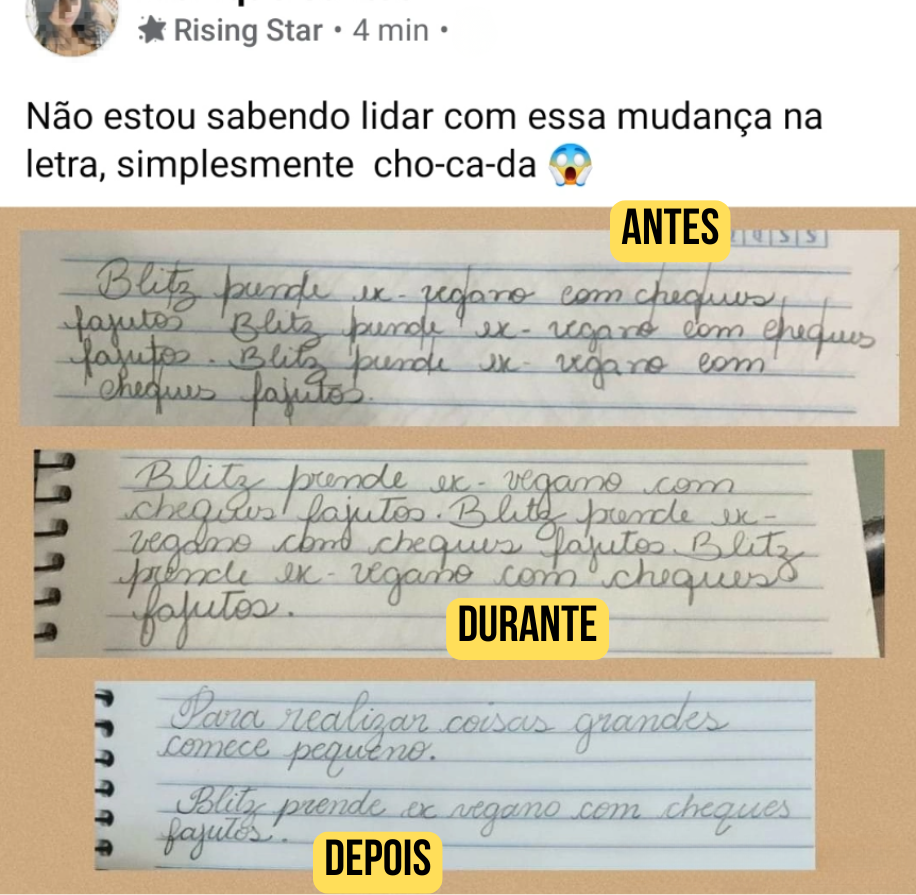 Rising Star • 4 min •
Não estou sabendo lidar com essa mudança na
letra, simplesmente cho-ca-da 😱
ANTES
Blitz prende ex-vegano com cheques
fajutos Blitz prende ex-vegano com cheques
fajutos. Blitz prende ex-vegano com
cheques fajutos.
Blitz prende ex-vegano com
cheques fajutos. Blitz prende ex-
vegano com cheques fajutos. Blitz
prende ex-vegano com cheques
fajutos.
DURANTE
Para realizar coisas grandes
comece pequeno.
Blitz prende ex vegano com cheques
fajutos.
DEPOIS